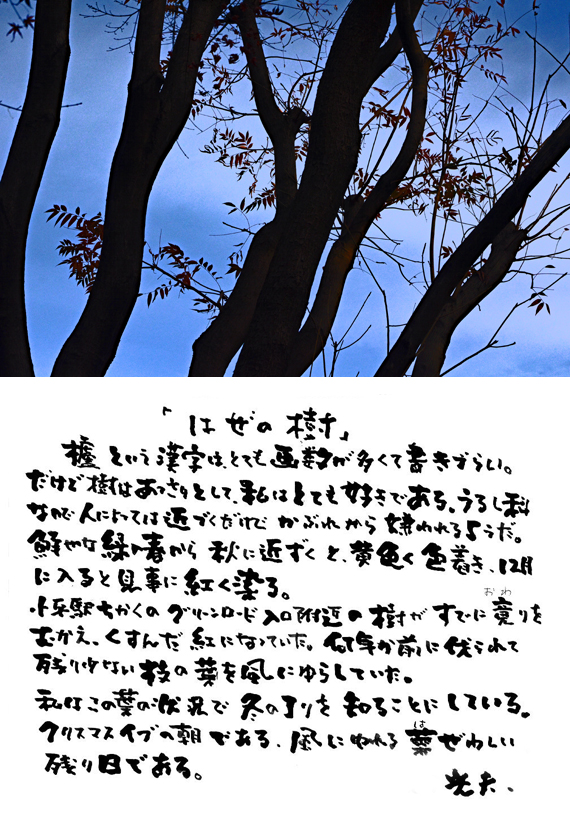 「はぜの樹」
櫨という漢字は、とても画数が多くて書きづらい。
だけど樹はあっさりとして、私はとても好きである。うるし科
なので人によっては近づくだけでかぶれから嫌われるようだ。
鮮やかな緑の春から秋に近ずくと、黄色く色着き、12月
に入ると見事に紅く染る。
小平駅ちかくのグリーンロード入口附近の樹がすでに竟りを
むかえ、くすんだ紅になっていた。何年か前に伐られて
残り少ない枝の葉を風にゆらしていた。
私はこの葉の状況で冬の訪りを知ることにしている。
クリスマスイブの朝である、風にゆれる葉ぜわしい
残り日である。
光夫.